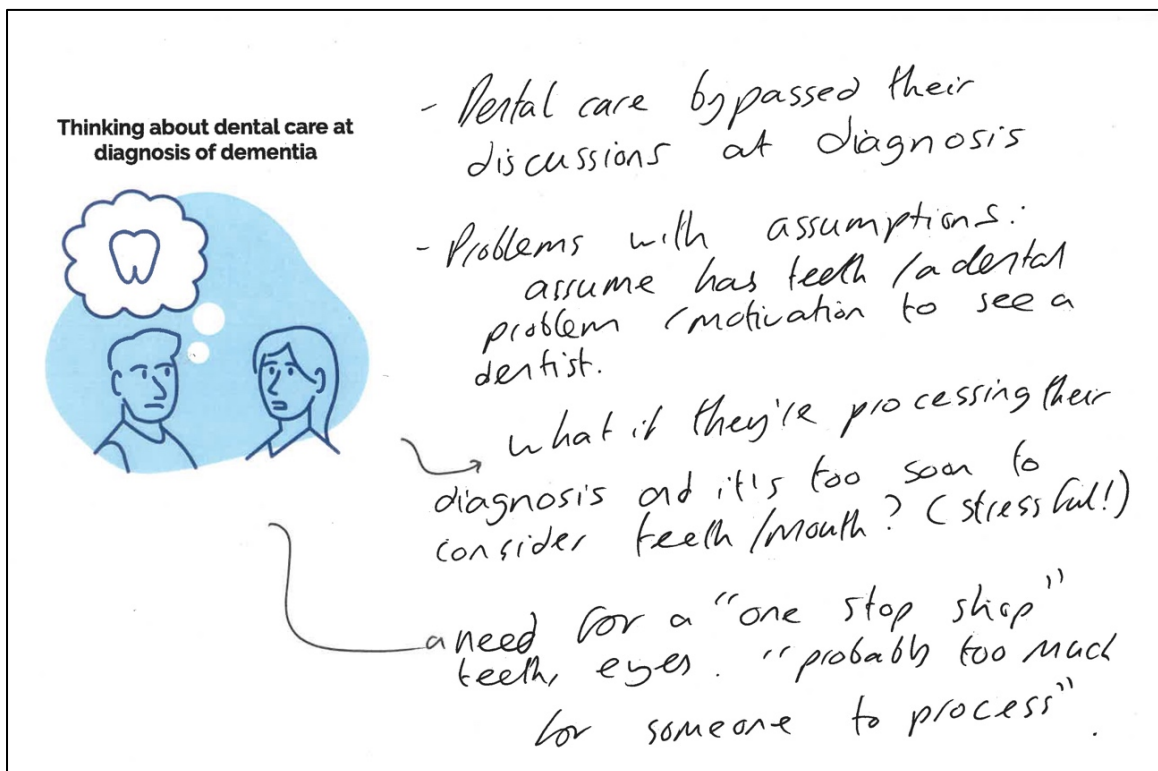 Thinking about dental care at
diagnosis of dementia
- Dental care bypassed their
discussions at diagnosis
- Problems with assumptions:
assume has teeth /a dental
problem /motivation to see a
dentist.
what if they're processing their
diagnosis and it's too soon to
consider teeth/mouth? (stressful!)
a need for a "one stop shop"
teeth, eyes. "probably too much
for someone to process".